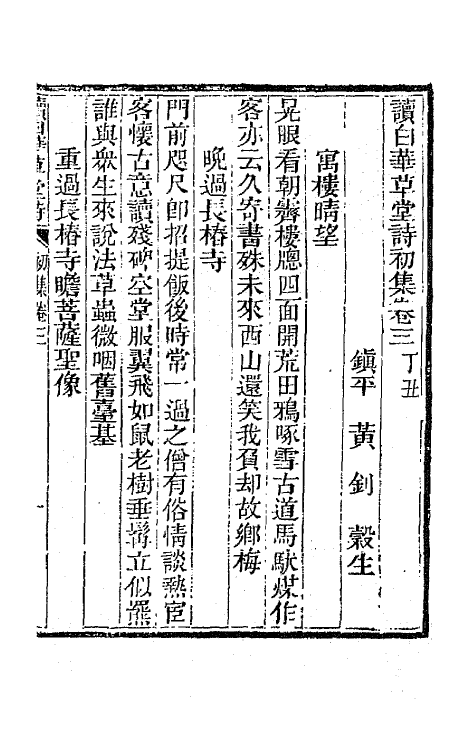 讀白華草堂詩初集卷三 丁丑
鎮平 黃釗 穀生
寓樓晴望
晃眼看朝霽樓牕四面開荒田鴉啄雪古道馬馱煤作
客亦云久寄書殊未來西山還笑我負却故鄉梅
晚過長椿寺
門前咫尺卽招提飯後時常一過之僧有俗情談熱宦
客懷古意讀殘碑空堂服翼飛如鼠老樹垂髯立似羆
誰與衆生來說法草蟲微咽舊臺基
重過長椿寺瞻菩薩聖像
讀白華草堂詩 初集卷三 一